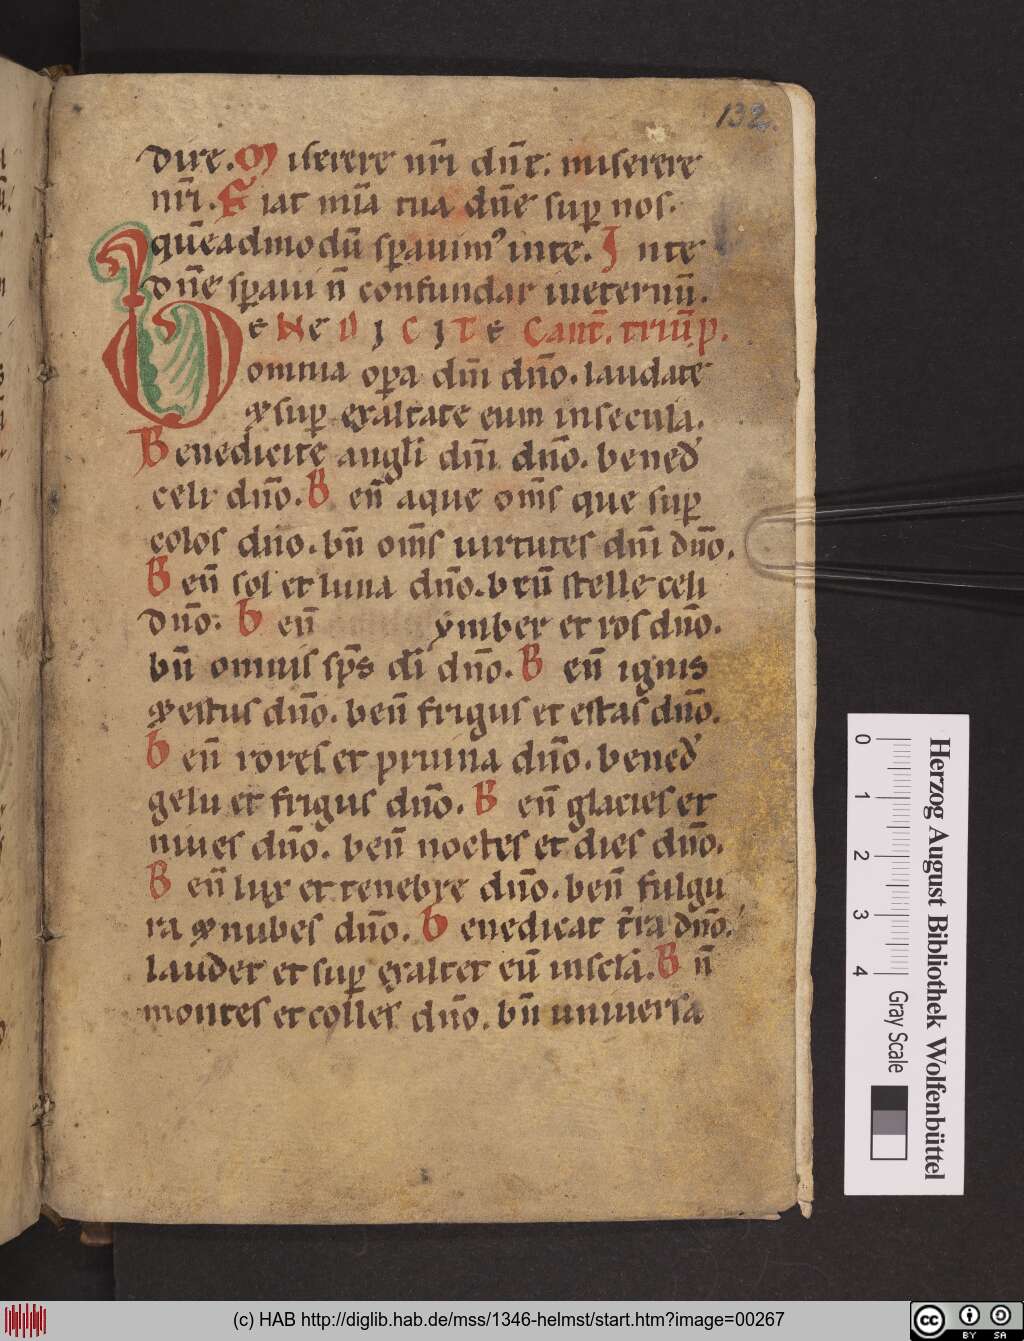 132.
dire. Miserere nr̄i dn̄e. miserere
nr̄i. Fiat mīa tua dn̄e suꝑ nos.
quēadmodū sꝑauim᷒ inte. Inte
dn̄e sꝑaui n̄ confundar ineternū.
BeNeDICITe Cant̄. triū p.
omnia oꝑa dn̄i dn̄o. laudate
⁊suꝑ exaltate eum insecula.
Benedicite angl̄i dn̄i dn̄o. bened̄
celi dn̄o. Ben̄ aque om̄s que suꝑ
celos dn̄o. bn̄ om̄s uirtutes dn̄i dn̄o.
Ben̄ sol et luna dn̄o. ben̄ stelle celi
dn̄o. ben̄ ymber et ros dn̄o.
bn̄ omnis sp̄s di̅ dn̄o. Ben̄ ignis
⁊estus dn̄o. ben̄ frigus et estas dn̄o.
ben̄ rores et pruina dn̄o. bened̄
gelu et frigus dn̄o. Ben̄ glacies et
niues dn̄o. ben̄ noctes et dies dn̄o.
Ben̄ lux et tenebre dn̄o. ben̄ fulgu
ra ⁊nubes dn̄o. benedicat t̄ra dn̄o.
laudet et suꝑ exaltet eū inscl̄a. Bn̄
montes et colles dn̄o. bn̄ uniuersa
Herzog August Bibliothek Wolfenbüttel
0 1 2 3 4 Gray Scale
(c) HAB http://diglib.hab.de/mss/1346-helmst/start.htm?image=00267
cc BY SA